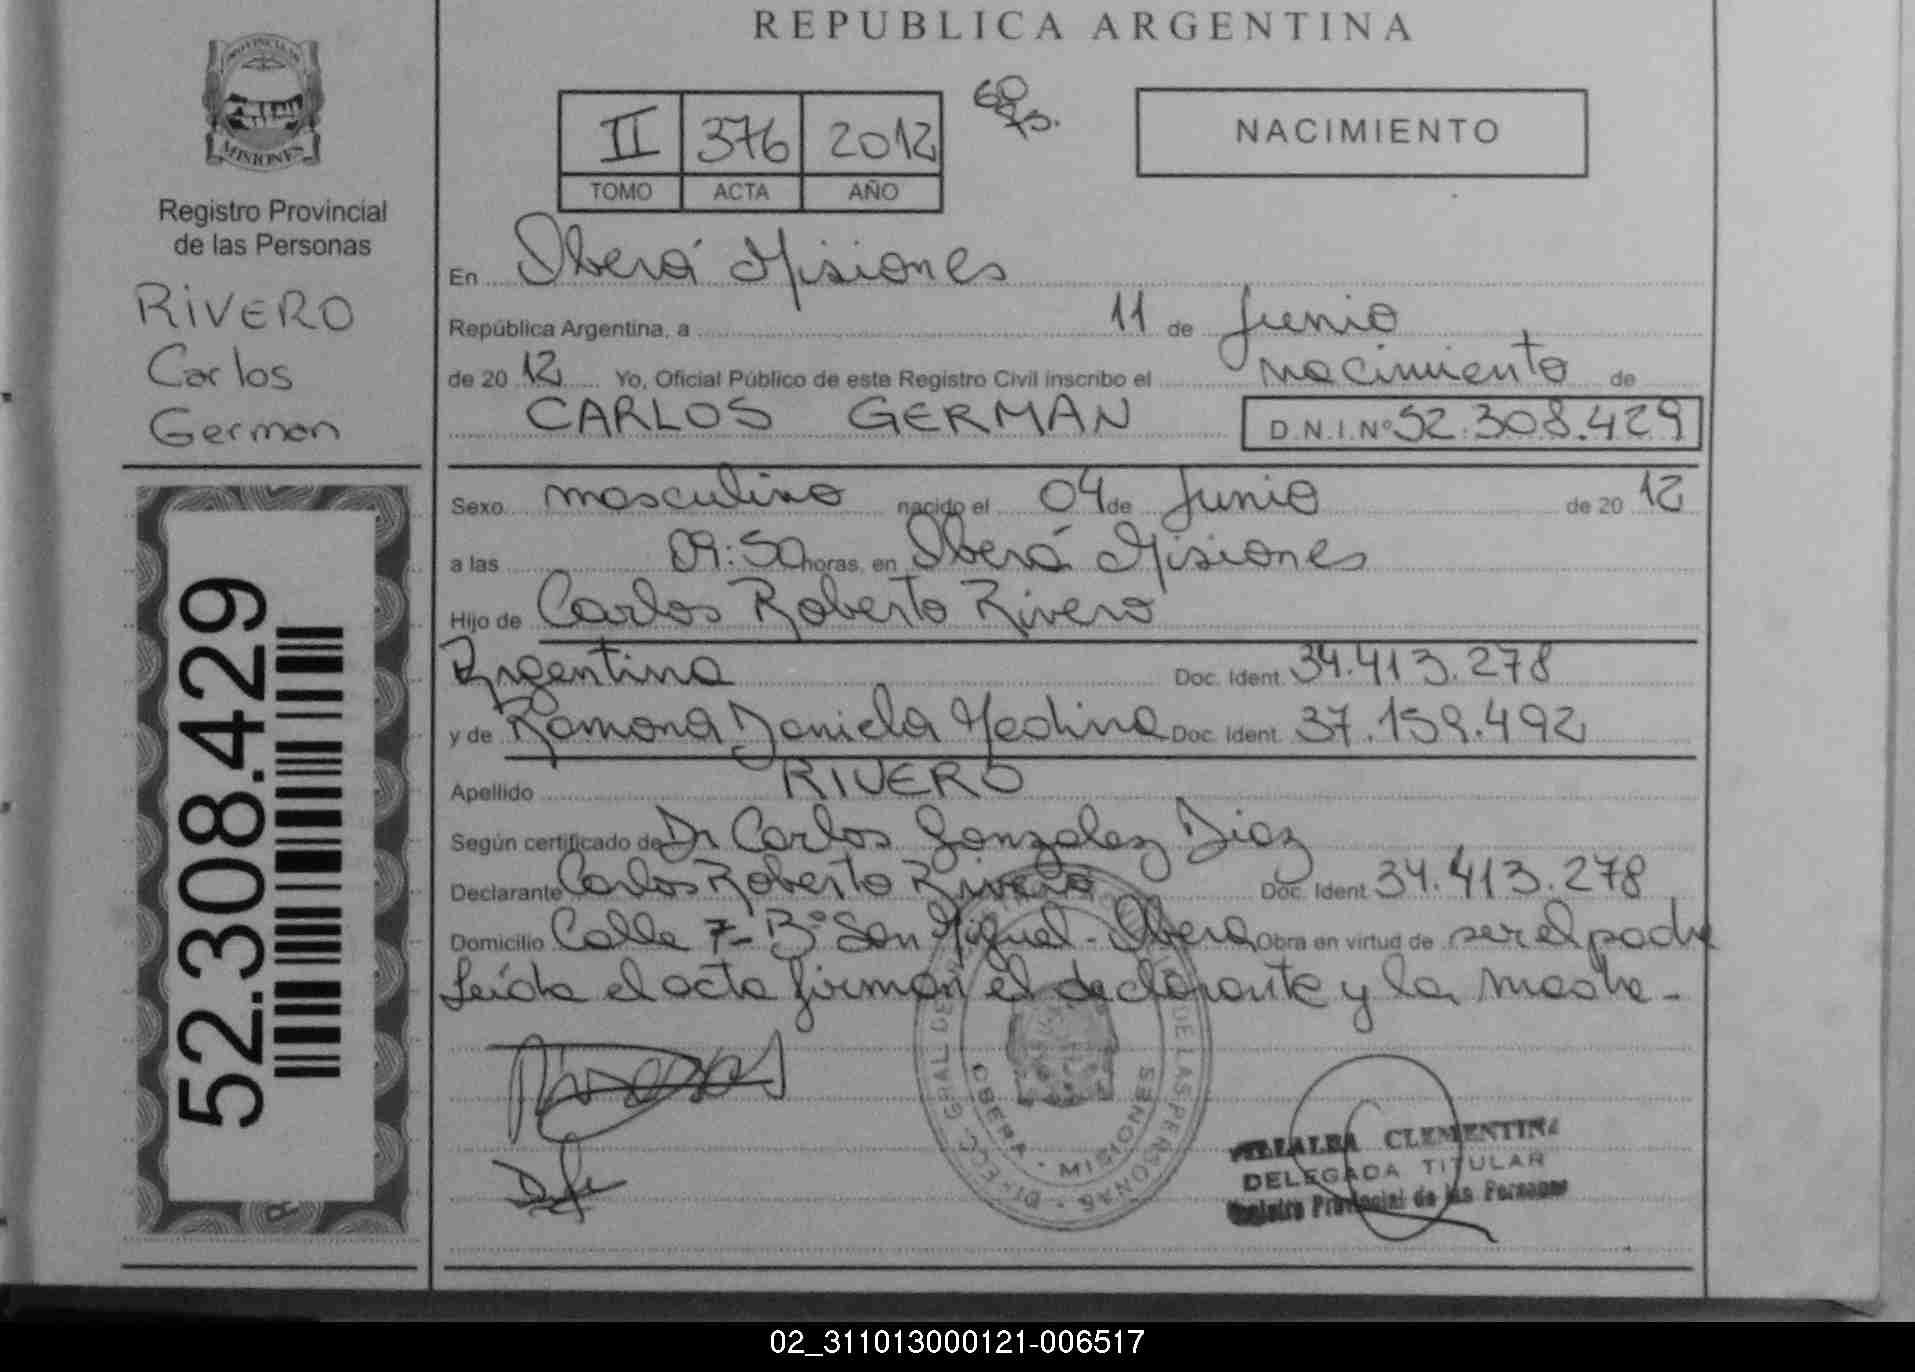 REPUBLICA ARGENTINA
PROVINCIA DE
MISIONES
Registro Provincial
de las Personas
RIVERO
Carlos
German
52.308.429
II 376 2012
TOMO ACTA AÑO
NACIMIENTO
En Oberá Misiones
República Argentina, a 11 de Junio
de 20 12 Yo, Oficial Público de este Registro Civil inscribo el nacimiento de
CARLOS GERMAN D.N.I.Nº 52.308.429
Sexo masculino nacido el 04 de Junio de 20 12
a las 09:50 horas, en Oberá Misiones
Hijo de Carlos Roberto Rivero
Argentina Doc. Ident. 34.413.278
y de Ramona Daniela Medina Doc. Ident. 37.159.492
Apellido RIVERO
Según certificado de Dr Carlos Gonzalez Diaz
Declarante Carlos Roberto Rivero Doc. Ident. 34.413.278
Domicilio Calle 7- Bº San Miguel - Oberá Obra en virtud de ser el padre
Leída el acta firman el declarante y la madre -
DIRECC. GRAL DE LAS PERSONAS
OBERA - MISIONES
CLEMENTINA
DELEGADA TITULAR
Registro Provincial de las Personas
02_311013000121-006517